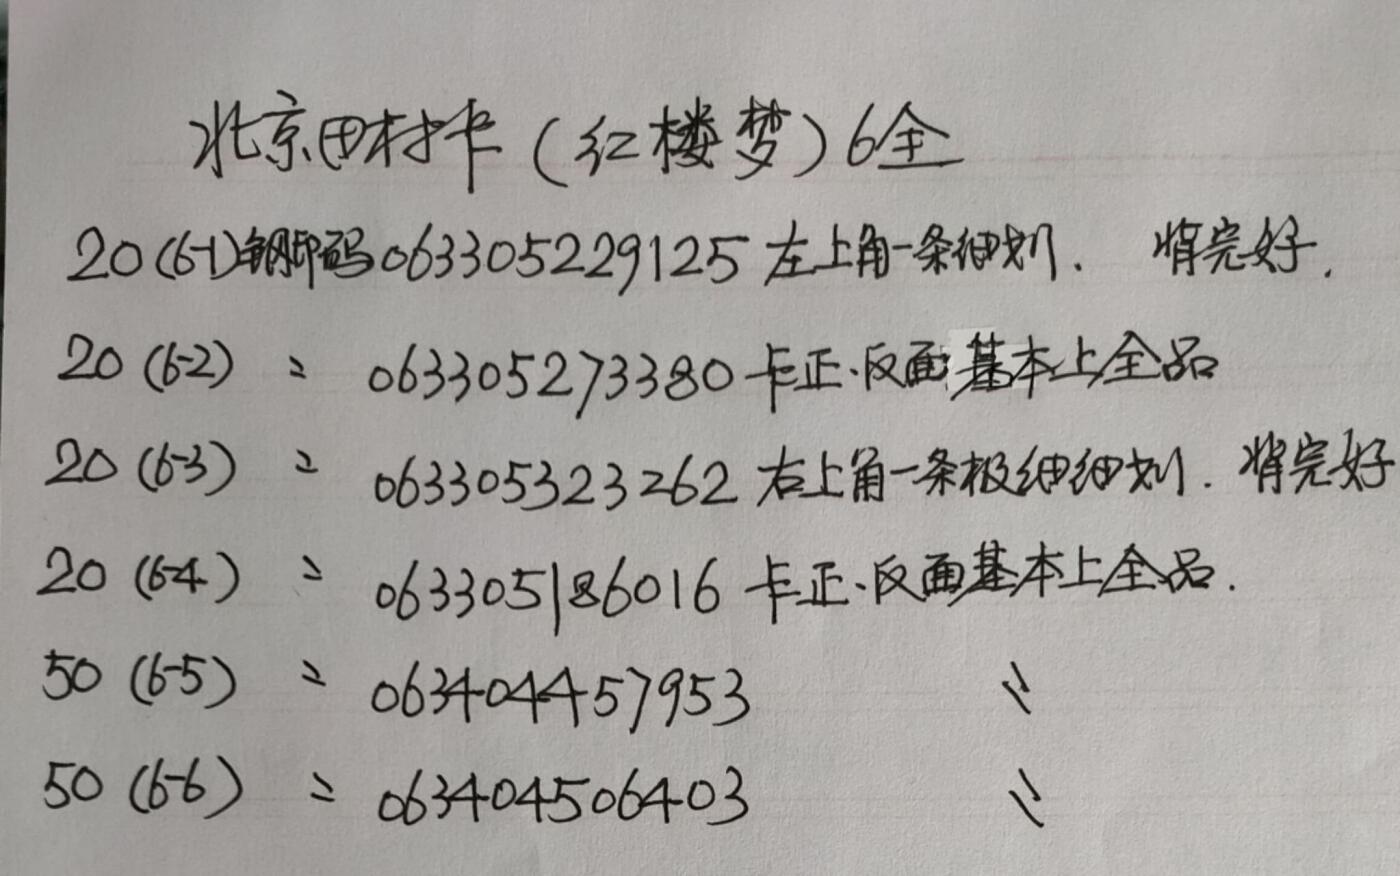 北京田村卡(红楼梦)6全
20(6-1)钢印码063305229125左上角一条细划. 将完好.
20(6-2) 〃 063305273380卡正.反面基本上全品
20(6-3) 〃 063305323262右上角一条极细细划. 将完好
20(6-4) 〃 063305186016卡正.反面基本上全品.
50(6-5) 〃 063404457953 〃
50(6-6) 〃 063404506403 〃